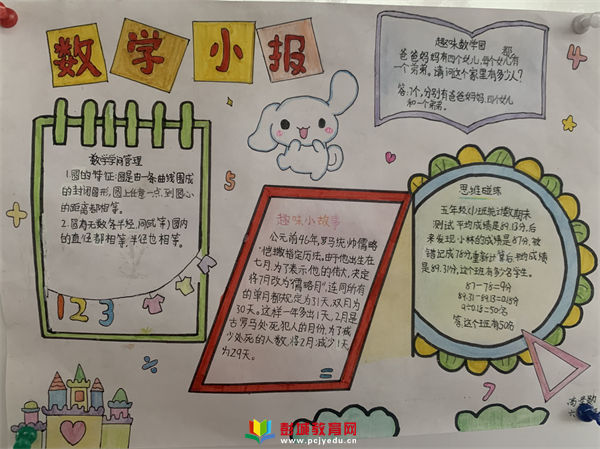 数学小报
数学学习管理
1.圆的特征:圆是由一条曲线围成
的封闭图形,圆上任意一点,到圆心
的距离都相等。
2.圆有无数条半径,同(或等)圆内
的直径都相等,半径也相等。
123
5
趣味数学园
爸爸妈妈有四个女儿,每个女儿都有
一个弟弟。请问这个家里有多少人?
答:7个,分别有爸爸妈妈,四个女儿
和一个弟弟。
趣味小故事
公元前46年,罗马统帅儒略
恺撒指定历法,由于他出生在
七月,为了表示他的伟大,决定
将7月改为“儒略月”,连同所有
的单月都规定为31天,双月为
30天。这样一年多出1天,2月是
古罗马处死犯人的月份,为了减
少处死的人数,将2月减少1天
为29天。
思维磁练
五年级小班统计数期末
测试平均成绩是89.13分,后
来发现小林的成绩是87分,被
错记成78分重新计算后,平均成绩
是89.31分,这个班有多少名学生。
87-78=9分
89.31-89.13=0.18分
9÷0.18=50名
答:这个班有50名
7
彭城教育网
www.pcjyedu.cn